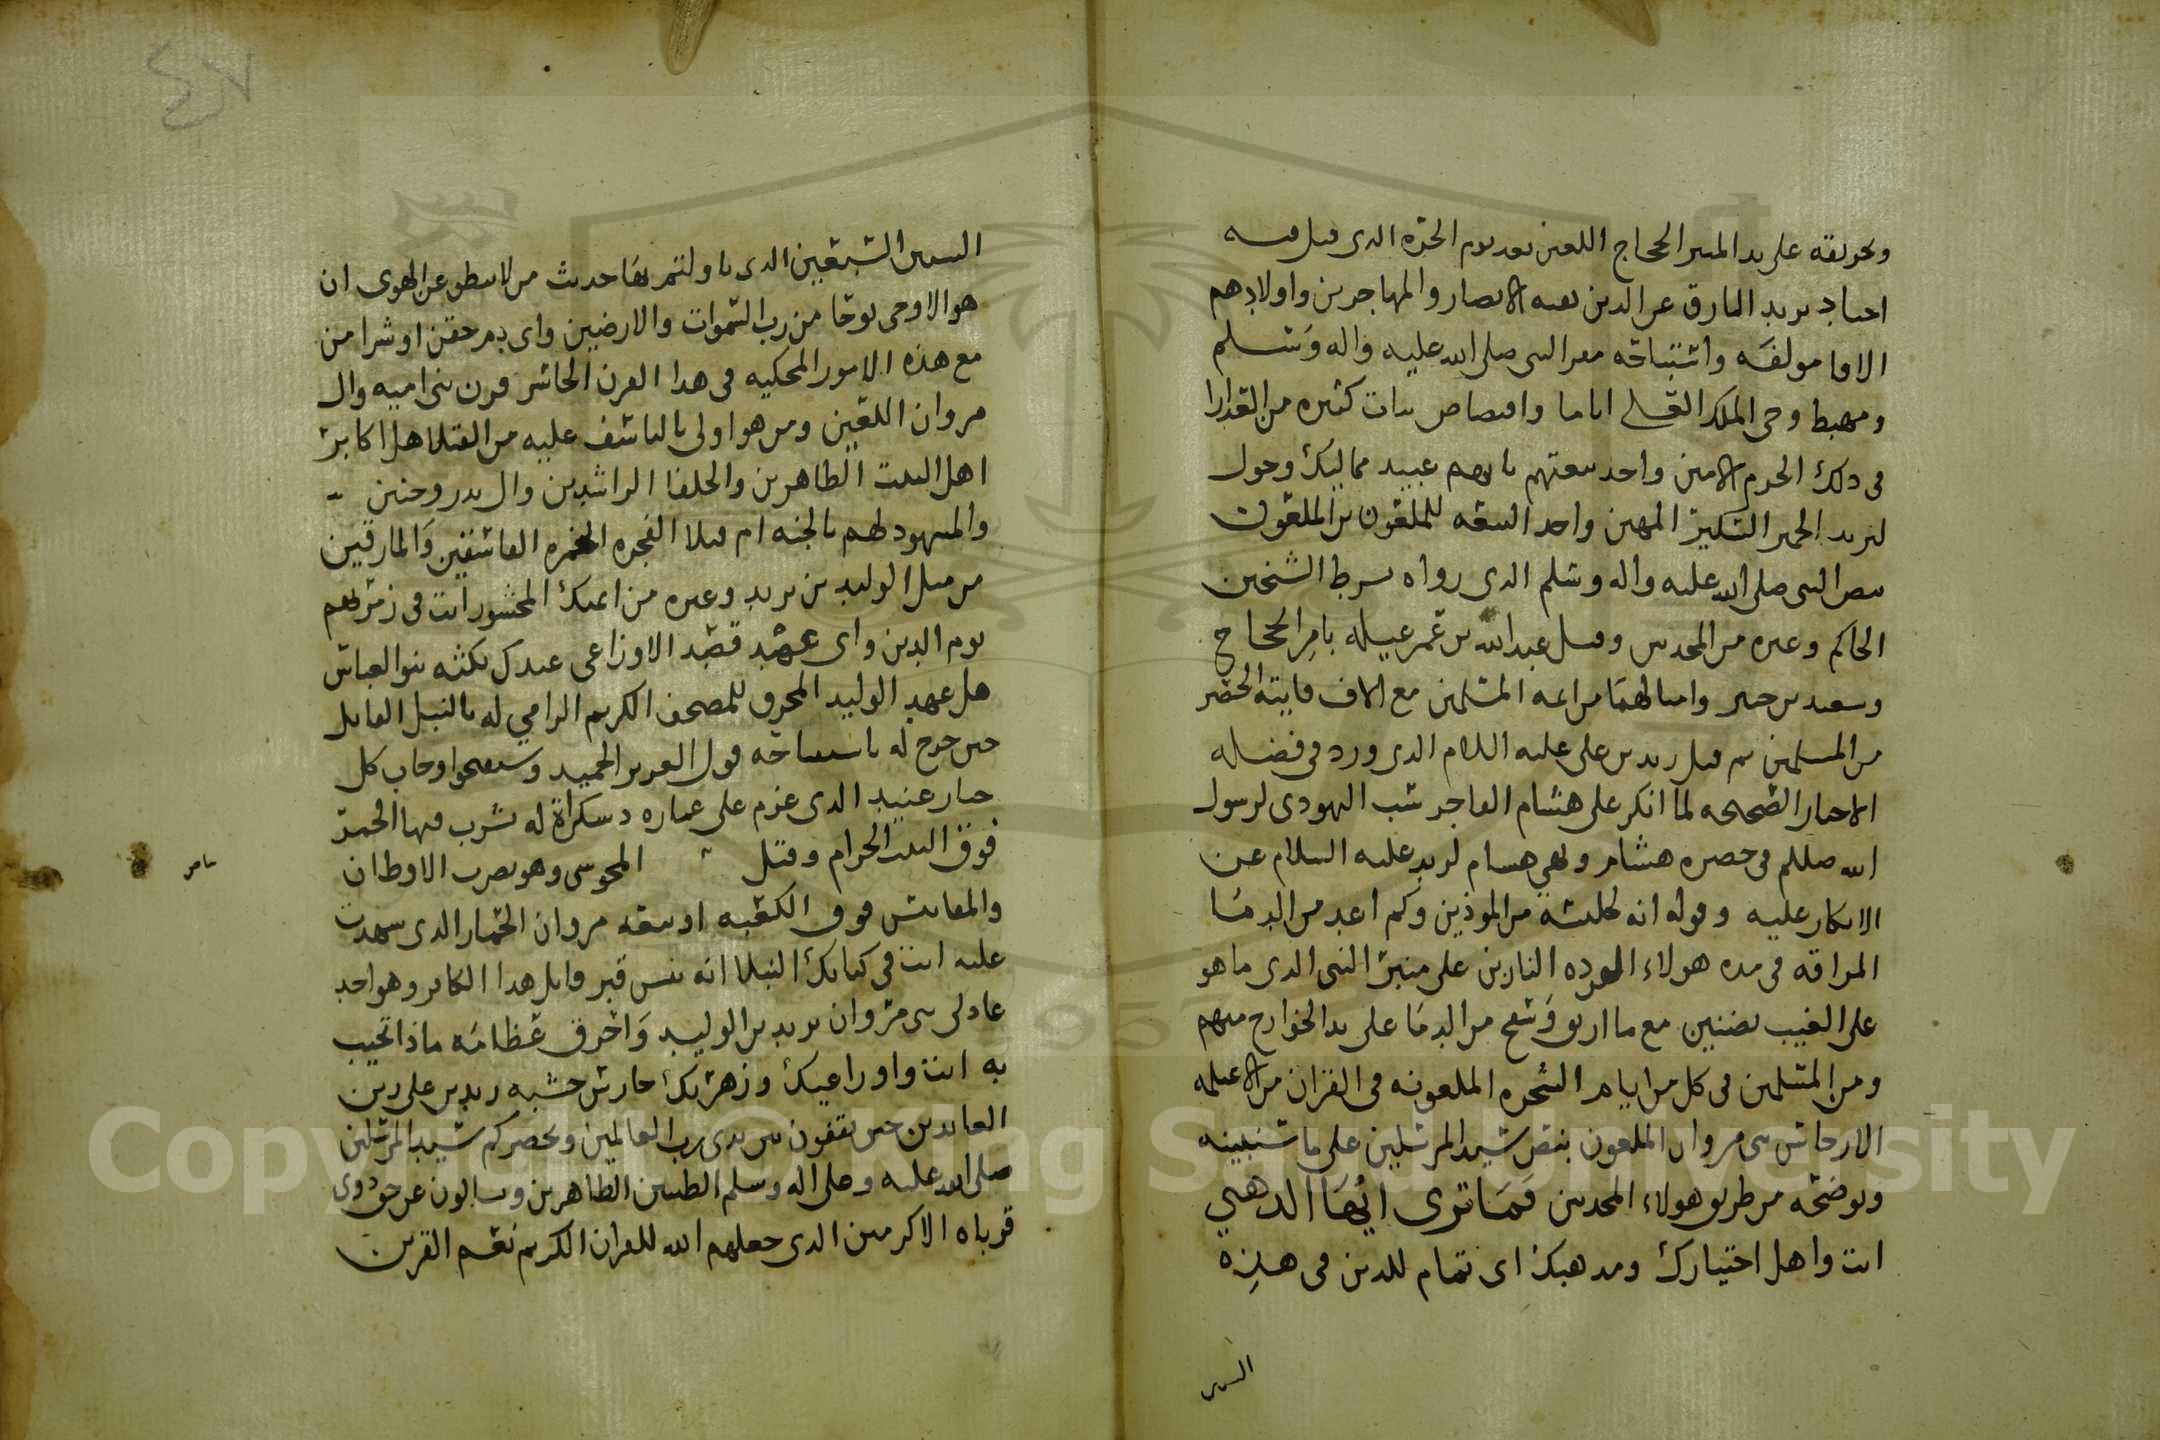 وتحريقه على يد المبير الحجاج اللعين بعد يوم الحره الذي قتل فيه
اجناد يزيد المارق عن الدين بقيه الانصار والمهاجرين واولادهم
الافا مولفه واستباحه مقر النبي صلى الله عليه واله وسلم
ومهبط وحي الملك اياما وافتضاض بنات كثيره من العذارا
في ذلك الحرم الامين واخذ بيعتهم بانهم عبيد مماليك وخول
ليزيد الخمير السكير المهين واخذ البيعه للملعون بن الملعون
بنص النبي صلى الله عليه واله وسلم الذي رواه بشرط الشيخين
الحاكم وغيره من المحدثين وقتل عبدالله بن عمر غيله بامر الحجاج
وسعيد بن جبير وامثالهما من ايمه المسلمين مع الاف فايته الحصر
من المسلمين ثم قتل زيد بن علي عليه السلام الذي ورد في فضله
الاخبار الصحيحه لما انكر على هشام الفاجر سب اليهودي لرسول
الله صللم في حضره هشام ونهي هشام لزيد عليه السلام عن
الانكار عليه وقوله انه لجليسه من الموذين وكم اعد من الدما
المراقه في مده هولاء القرده النازين على منبر النبي الذي ما هو
على الغيب بضنين مع ما اريق وسفح من الدما على يد الخوارج منهم
ومن المسلمين في كل من ايام الشجره الملعونه في القران من الاغيلمه
الارجاس بني مروان الملعون بنص سيد المرسلين على ما سنبينه
ونوضحه من طريق هولاء المحدثين فما ترى ايها الذهبي
انت واهل اختيارك ومذهبك اي تمام للدين في هذه
السنين
السنين السبعين الذي تاولتم بها حديث من لا ينطق عن الهوى ان
هو الا وحي يوحا من رب السموات والارضين واي دم حقن او شرا من
مع هذه الامور المحكيه في هذا القرن الخاسر قرن بني اميه وال
مروان اللعين ومن هو اولى بالتاسف عليه من القتلا هل اكابر
اهل البيت الطاهرين والخلفا الراشدين وال بدر وحنين
والمشهود لهم بالجنه ام قتلا الفجره الفاسقين والمارقين
من مثل الوليد بن يزيد وغيره من ايمتك المحشور انت في زمرتهم
يوم الدين واي عهد قصد الاوزاعي عندك نكثه بنو العباس
هل عهد الوليد المحرق للمصحف الكريم الرامي له بالنبل القايل
حين خرج له باستفتاحه قول العزيز الحميد واستفتحوا وخاب كل
جبار عنيد الذي عزم على عماره دسكراة له يشرب فيها الخمر
فوق البيت الحرام وقتل المجوسي وهو يضرب الاوطان
والمغانيس فوق الكعبه او بيعه مروان الحمار الذي شهدت
عليه انت في كتابك النبلا انه نبش قبر قاتل هذا الكافر وهو احد
عادلي بني مروان يزيد بن الوليد واحرق عظامه ماذا تجيب
به انت واوزاعيك وزهريك حارس خشبه زيد بن علي زين
العابدين حين تقفون بين يدي رب العالمين ويحضركم سيد المرسلين
صلى الله عليه وعلى اله وسلم الطيبين الطاهرين وتسالون عن حق ذوي
قرباه الاكرمين الذي جعلهم الله للقران الكريم نعم القرين